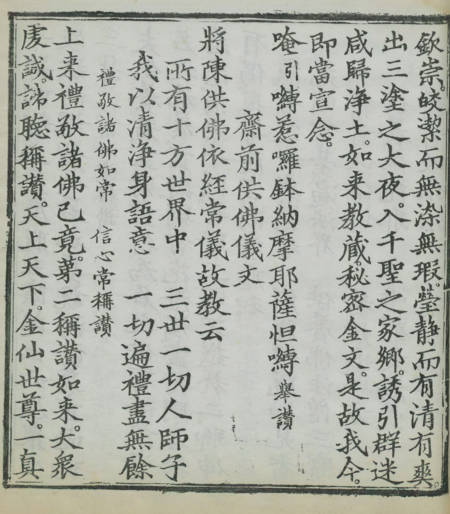 欽崇。皎潔而無染無瑕。瑩靜而有清有爽。
出三塗之大夜。入千聖之家鄉。誘引群迷
咸歸淨土。如來教藏。秘密金文。是故我今。
即當宣念。
唵引嚩惹囉鉢納摩耶薩怛嚩舉讃
齋前供佛儀文
將陳供佛依經常儀故教云
所有十方世界中　三世一切人師子
我以清淨身語意　一切遍禮盡無餘
禮敬諸佛如常　信心常稱讃
上来禮敬諸佛已竟。第二稱讃如来。大衆
虔誠。諦聽稱讃。天上天下。金仙世尊。一真